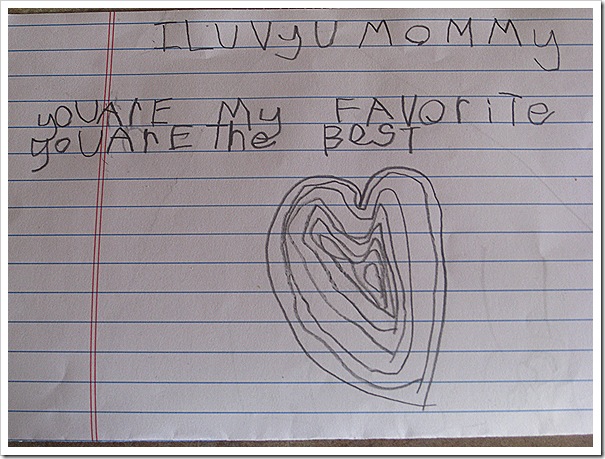 I LUVyU MOMMy
yoUArE My FAVoriTe
yoUArE The BesT